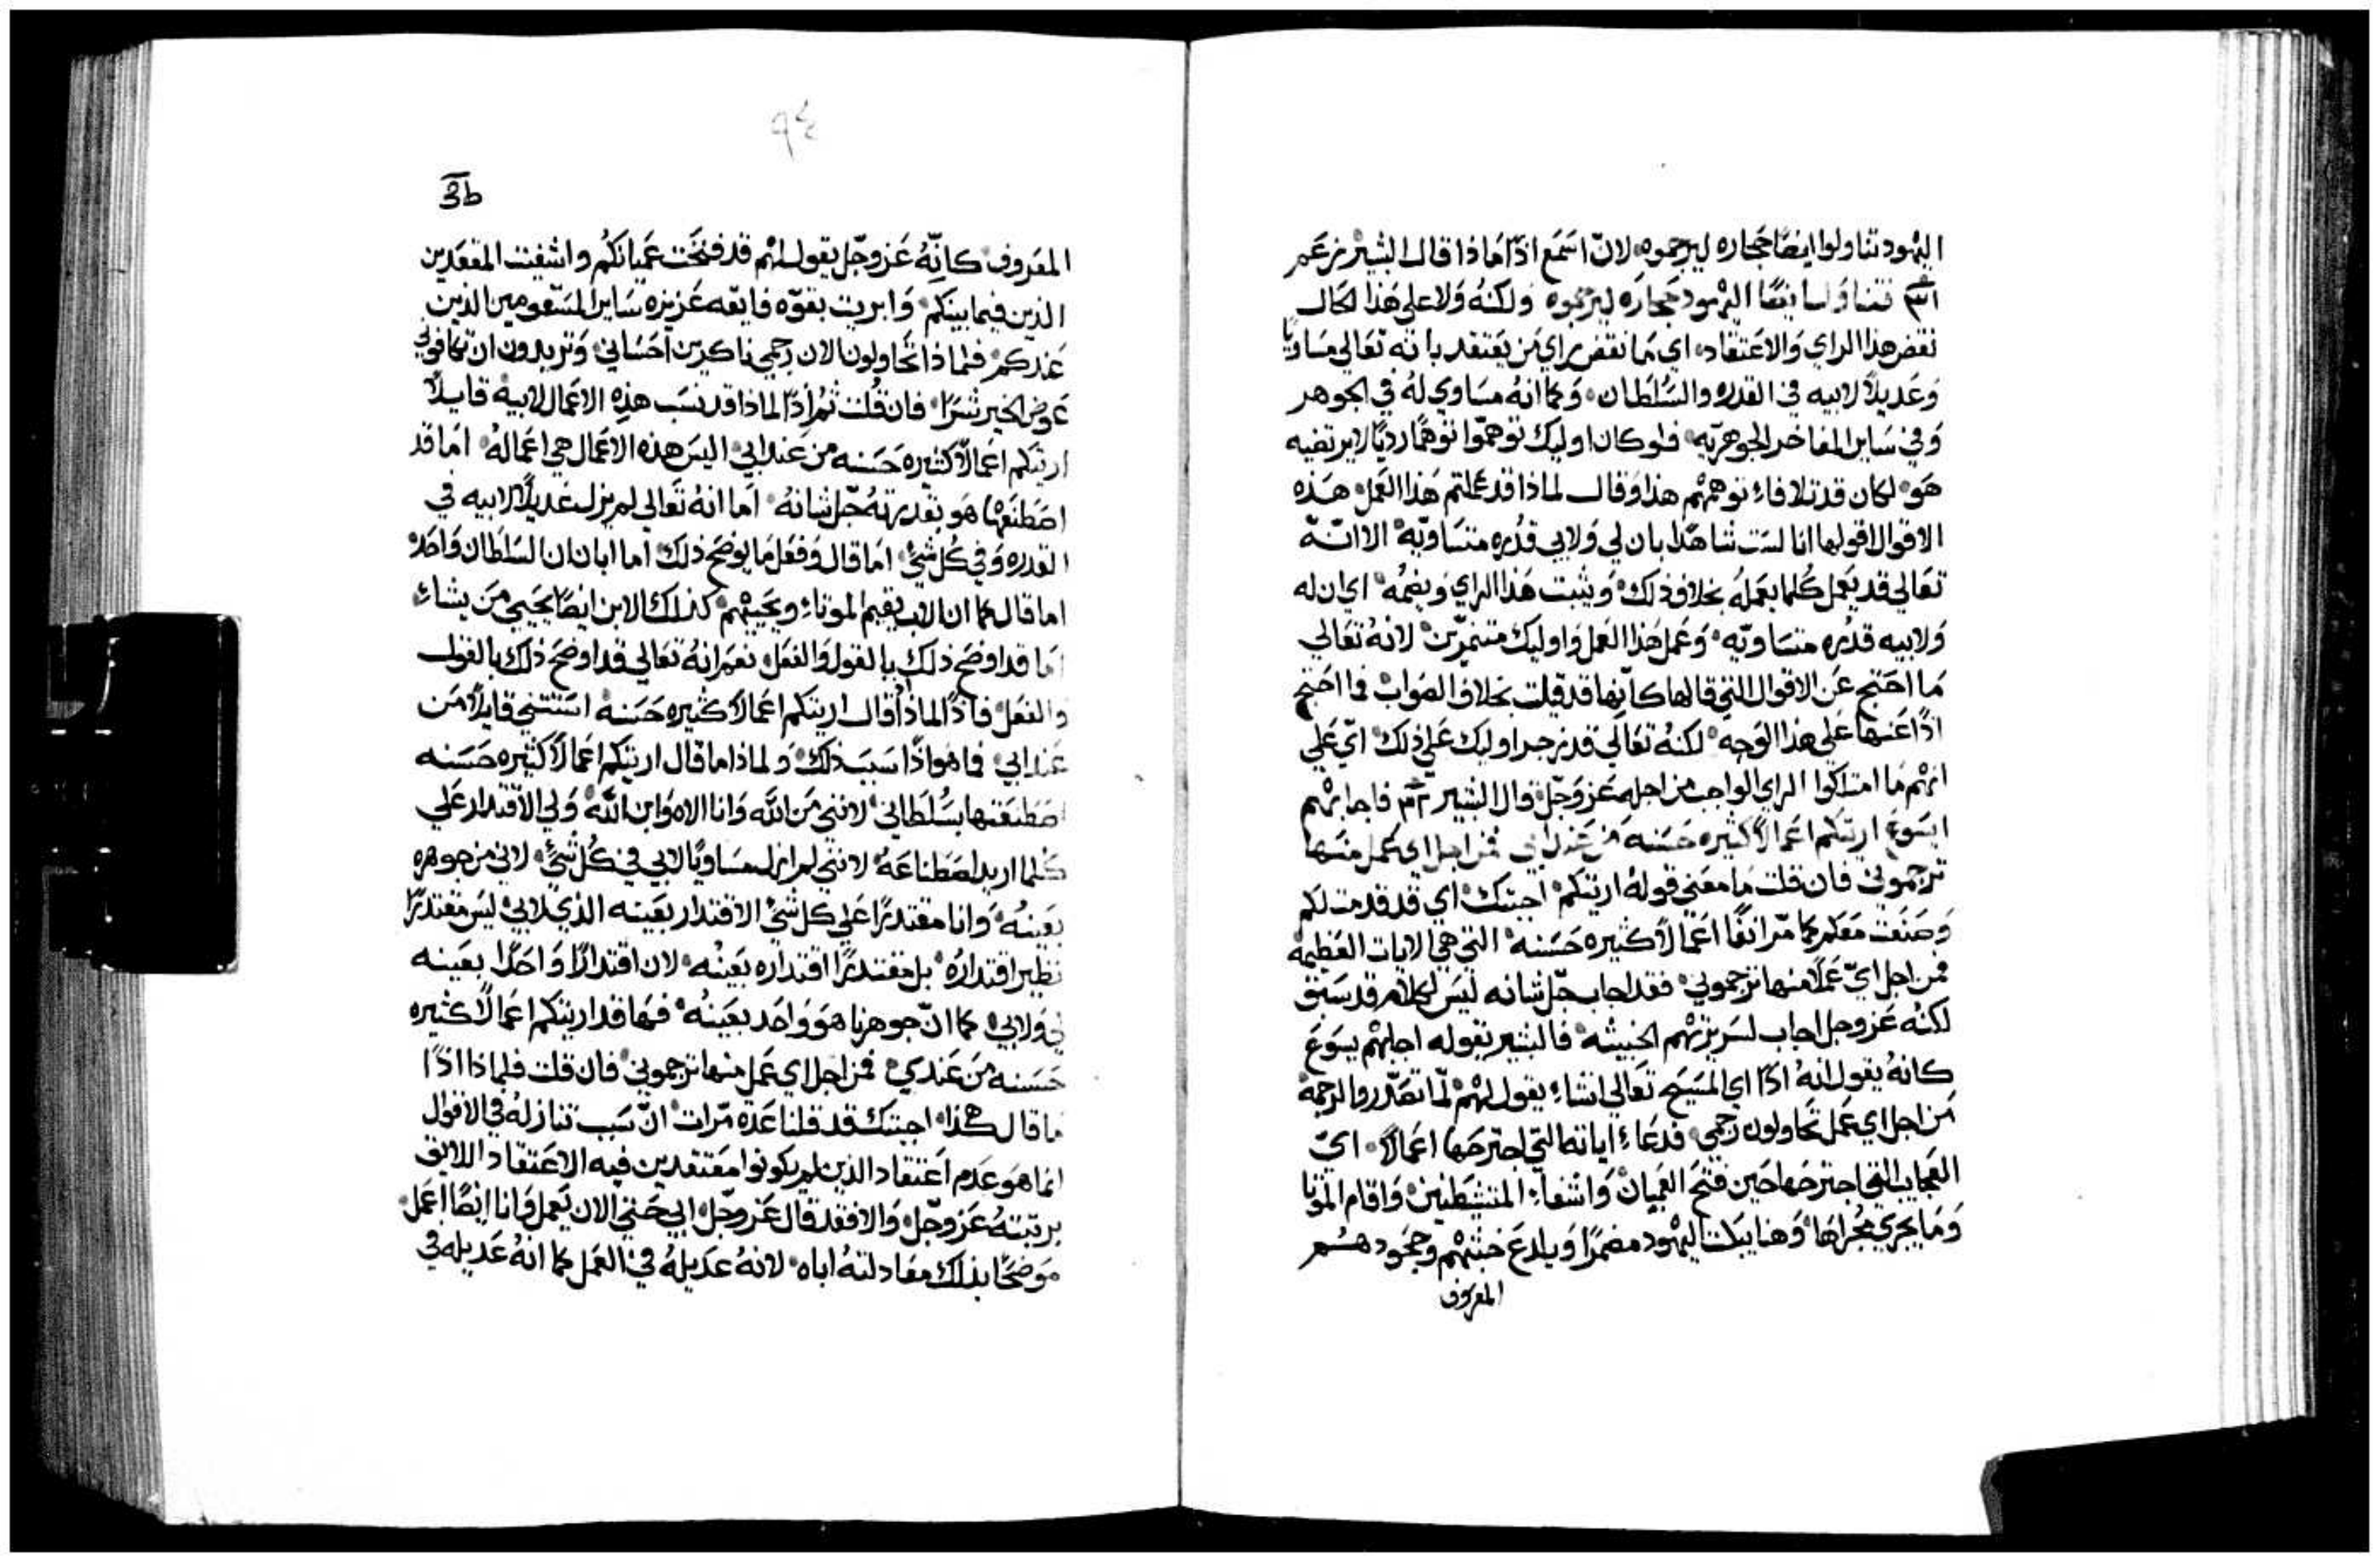 اليهود تناولوا ايضًا حجاره ليرجموه لانّ اسمَع اذًا مَاذا قال البشير نرعَم
فتناول ايضًا اليهود حجارَه ليرجموه ولكنهُ وَلا على هَذا الحَال
نقض هذا الراي وَالاعتقاد اي مَا نقض راي مَن يَعتقد بانه تعَالي مسَاويًا
وَعَديلاً لابيه في القدره والسُلطان وَكما انهُ مسَاوي لهُ في الجوهر
وَفي سَاير المفاخر الجوهريّه فلو كان اوليك توهمّوا توهمًا رديًا لا يرتضيه
هَو لكان قد تلافاء توهمهُم هذا وَقال لماذا قد عَملتم هَذا العَمل هَذه
الاقوال اقولها انا لسَت شاهدًا بان لي وَلابي قدُره متسَاويّه الا انّهُ
تعَالي قد يَعمل كُلما يعمَلهُ بخلاف ذلك وَيثبت هَذا الراي وَيضمُه اي ان له
وَلابيه قدُره متسَاويّه وَعمل هَذا العَمل وَاوليك متنمرّين لانهُ تعَالي
مَا احَتج عَن الاقوال التي قالها كانّها قد قيلت بخلاف الصَواب فما احَتج
اذًا عَنها عَلي هَذا الوَجه لكنهُ تعَالي قد زجر اوليك عَلي ذلك ايّ عَلي
انهُم مَا امتلكوا الراي الواجب من اجله عَز وَجّل قال البشير فاجابهُم
ايسَوع اريتكم اعَمالاً كثيره حَسَنه مَن عَند ابي فمن اجل اي عَمل منَها
ترجموني فان قلت مَا معَني قولهُ اريتكم اجبتك اي قد قدمت لكم
وَصنَعت مَعكم كما مّر انفًا اعَمالاً كثيره حَسَنه التي هَي الايات العَظيمه
فمن اجل ايّ عَملاً منها ترجموني فقد اجاب جّل شانه ليسَ لكلام قد سَبق
لكنهُ عَز وجل اجاب لسَريرتهُم الخبيثه فالبشير بقوله اجابهُم يسَوعَ
كانهُ يقول انهُ اذًا اي المسَيح تعَالي انشاء يقول لهُم لمّا تصَدّروا لرجمه
مَن اجل اي عَمل تحَاولون رَجمي فدعَاء اياته التي اجترحَها اعَمالاً ايّ
العَجايب التي اجترحَها حَين فتح العَميان وَاشفاء المتشيَطنين وَاقام الموَتا
وَمَا يجري مجُراهَا وَهَنا يبَكت اليهُود مضمرًا وَيلدعَ خبثهُم وجَحود هسُم
المعَروف
3b
٩٤
المعَروف كانّهُ عَز وجّل يقول لهُم قد فتحَت عَميانكم واشفيت المقعَدين
الذين فيما بينَكم وَابريت بقوّه فايقه عَزيزه سَاير المسّقومين الذين
عَندكم فلماذا تحَاولون الان رَجمي ناكرين احَسَاني وَتريدون ان تكافوني
عَوض الخير شَرًا فان قُلت ثمُ اذًا لماذا قد نسَب هذِه الاعَمال لابيه قايلاً
اريتكم اعَمالاً كثيره حَسَنه من عَند ابي اليسَ هَذه الاعَمال هي اعَمالهُ امَا قد
اصَطنَعها هَو بقدرتهُ جّل شانهُ امَا انهُ تعَالي لم يزل عَديلاً لابيه في
القدره وَفي كُل شيّ امَا قال وَفعَل مَا يوضحَ ذلك امَا ابان ان السَلطان وَاحَده
امَا قال كما ان الاب يقيم الموتاء ويحَييهُم كذلك الابن ايضًا يحَيي مَن يشاء
امَا قد اوضحَ ذلك بالقول وَالفعَل نعَم انهُ تعَالي قد اوضحَ ذلك بالقول
والفعَل فاذًا لماذا قال اريتكم اعَمالاً كثيره حَسَنه استَثني قايلاً مَن
عَند ابي فما هَو اذًا سَبب ذلك وَلماذا مَا قال اريتكم اعَمالاً كثيره حَسَنه
اصَطنعَتها بسُلطاني لانني مَن اللّه وَانا الاه وَابن اللّه وَلي الاقتدار عَلي
كلما اريد اصَطناعَهُ لانني لم ازل مسَاويًا لابي في كُل شيّ لاني من جوهره
بعَينهُ وَانا مقتدرًا عَلي كل شيّ الاقتدار بعَينه الذي لابي ليسَ مقتدرًا
نظير اقتدارهُ بل مقتدرًا اقتداره بعَينُه لان اقتدارًا وَاحَدًا بعَينه
لي وَلابي كما انّ جوهرنا هَو وَاحَد بعَينهُ فهَا قد اريتكم اعَمالاً كثيره
حَسَنه مَن عَندي فمن اجل اي عَمل منها ترجموني فان قلت فلماذا اذًا
مَا قال هَكذا اجبتك قد قلنا عَدة مّرات انّ سَبب تنازلهُ في الاقوال
انما هَو عَدم اعَتقاد الذين لم يكونوا معَتقدين فيه الاعَتقاد اللايق
برتبتهُ عَز وجّل وَالا فقد قال عَز وجّل ابي حَتي الان يَعمل وَانا ايضًا اعَمل
موَضحًا بذلك معَادلتهُ اباه لانهُ عَديلهُ في العَمل كما انهُ عَديله في